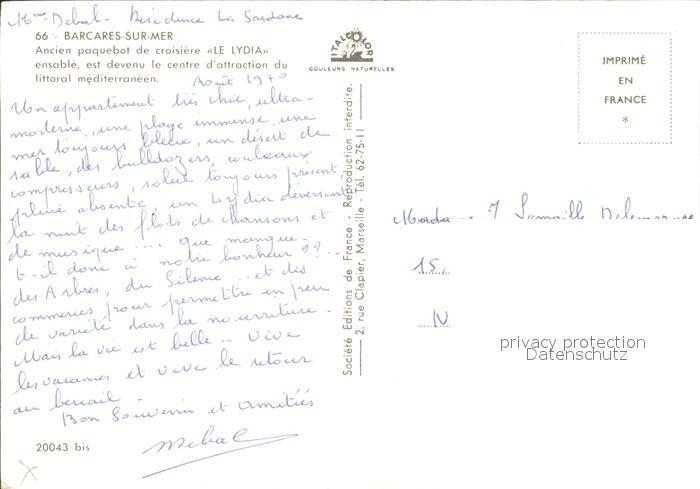 Mme Debal - Résidence La Sardane
66 - BARCARES-SUR-MER
Ancien paquebot de croisière «LE LYDIA»
ensablé, est devenu le centre d'attraction du
littoral méditerranéen.
Août 1970
Un appartement très chic, ultra-
moderne, une plage immense, une
mer toujours bleue, un désert de
sable, des bulldozers, rouleaux
compresseurs, soleil toujours présent,
pluie absente, un Lydia déversant
la nuit des flots de chansons et
de musique ... que manque-
t-il donc à notre bonheur ??..
des Arbres, du Silence .. et des
commerces pour permettre un peu
de variété dans la nourriture.
Mais la vie est belle .. Vive
les vacances et vive le retour
au bercail -
Bon Souvenir et Amitiés
20043 bis
ITALCOLOR
COULEURS NATURELLES
Société Editions de France - Reproduction interdite.
2, rue Clapier, Marseille - Tél. 62-75-11
IMPRIMÉ
EN
FRANCE
*
15.
N
privacy protection
Datenschutz